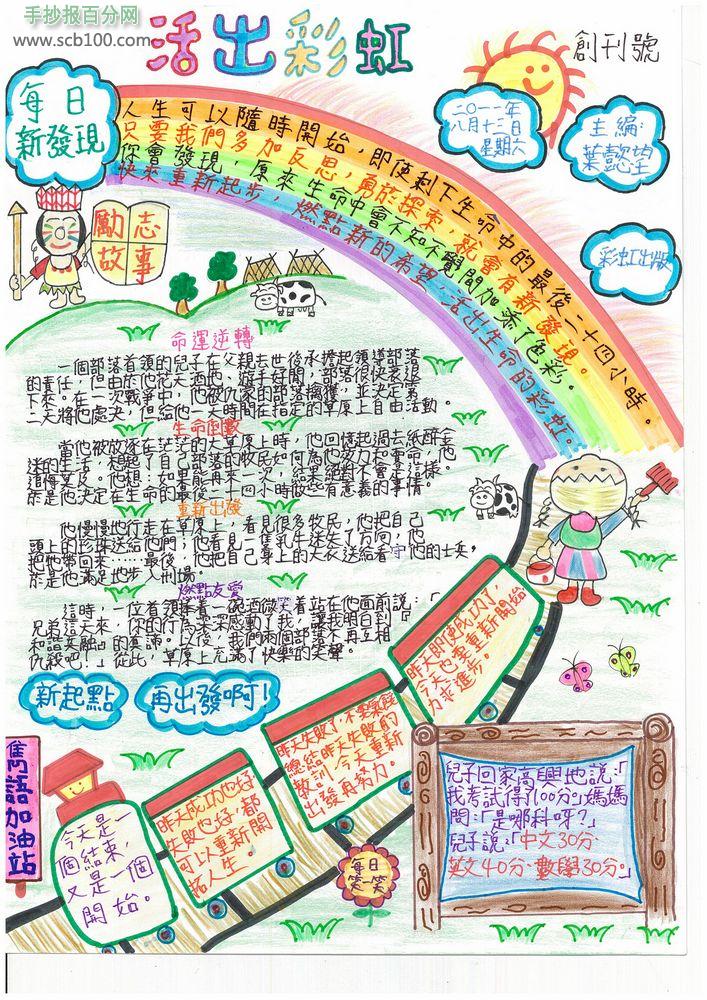 手抄报百分网
www.scb100.com
活出彩虹
創刊號
每日
新發現
二○一一年
八月十三日
星期六
主編:
葉懿望
彩虹出版
人生可以隨時開始，即使剩下生命中的最後二十四小時。
只要我們多加反思，勇於探索，就會有新發現。
你會發現，原來生命中會不知不覺間加添了色彩。
快來重新起步，燃點新的希望，活出生命的彩虹。
勵志
故事
命運逆轉
一個部落首領的兒子在父親去世後承擔起領導部落
的責任，但由於他花天酒地、游手好閒，部落很快衰退
下來。在一次戰爭中，他被仇家的部落擒獲，並決定第
二天將他處決，但給他一天時間在指定的草原上自由活動。
生命倒數
當他被放逐在茫茫的大草原上時，他回憶起過去紙醉金
迷的生活，想起了自己部落的牧民如何為他效力和奪命，他
追悔莫及。他想：如果能再來一次，結果絕對不會是這樣。
於是他決定在生命的最後二十四小時做些有意義的事情。
重新出發
他慢慢地行走在草原上，看見很多牧民，他把自己
頭上的珍珠送給他們；他看見一隻乳牛迷失了方向，他
把他帶回來……最後，他把自己身上的大衣送給看守他的士兵，
於是他滿足地步入刑場。
燃點友愛
這時，一位首領捧着一碗酒微笑着站在他面前說：「
兄弟這天來，你的行為深深感動了我，讓我明白到『
和諧共融』的真諦。以後，我們兩個部落不再互相
仇殺吧！」從此，草原上充滿了快樂的笑聲。
新起點
再出發啊！
雋語加油站
今天是一
個結束，
又是一個
開始。
昨天成功也好，
失敗也好，都
可以重新開
拓人生。
昨天失敗了，不要氣餒
總結昨天失敗的
教訓，今天重新
出發再努力。
昨天即使成功了，
今天也要重新開始
力求進步。
每日
一笑
兒子回家高興地說：「
我考試得了100分。」媽媽
問：「是哪科呀？」
兒子說：「中文30分、
英文40分、數學30分。」